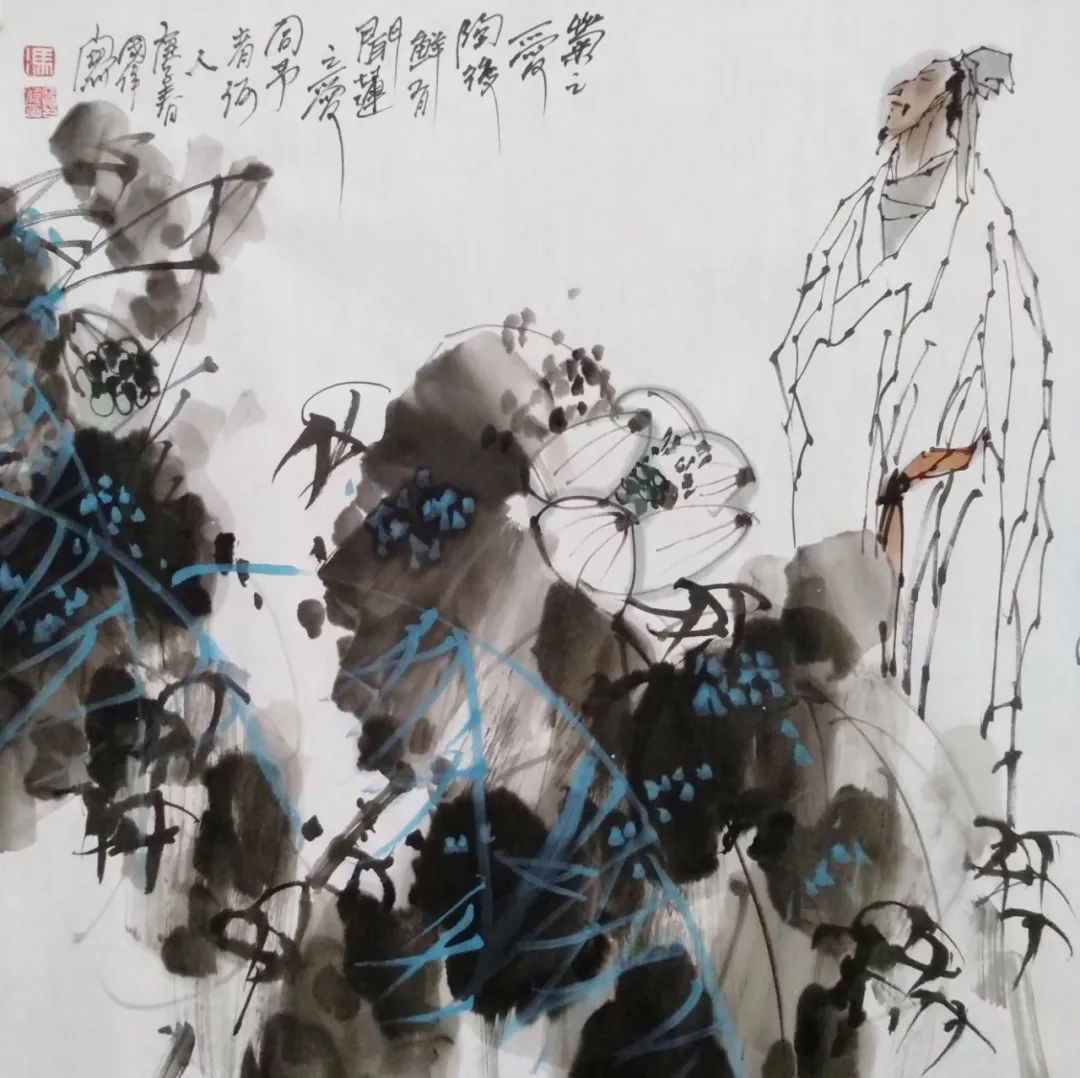 菊之
愛
陶後
鮮有
聞蓮
之愛
同予
者何
人
庚子春
國偉
寫